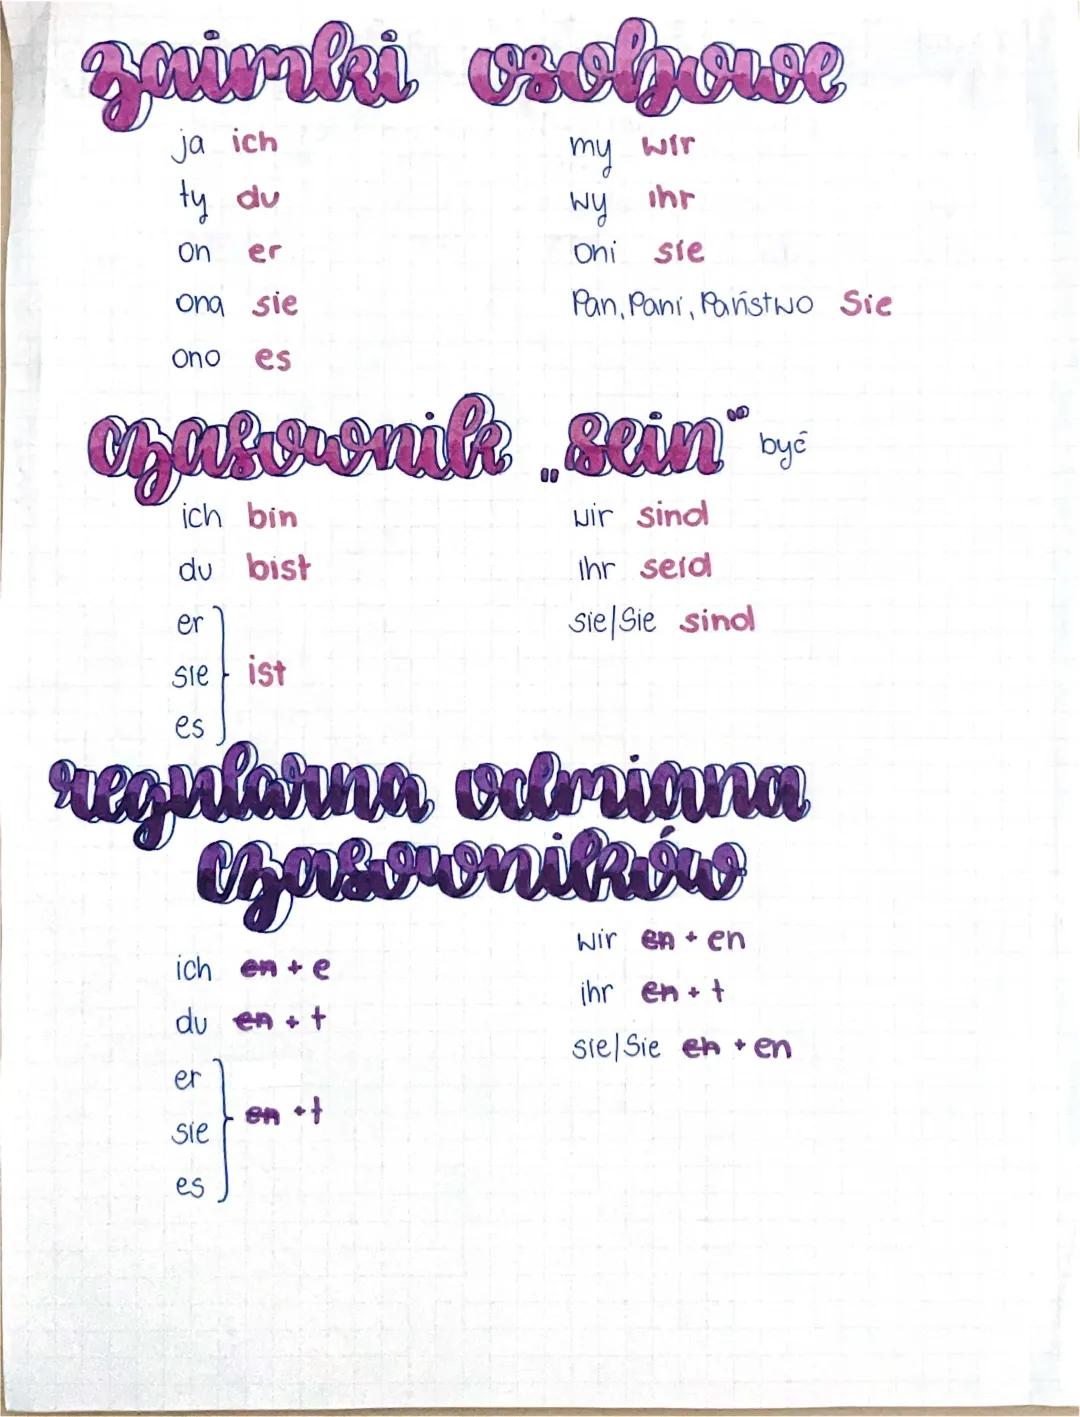 zaimki osobowe
ja ich
ty du
on er
ona sie
ono es
my wir
wy ihr
oni sie
Pan, Pani, Państwo Sie
czasownik „sein" być
ich bin
du bist
er
sie ist
es
wir sind
ihr seid
sie/Sie sind
regularna odmiana
czasowników
ich en + e
du en + t
er
sie en + t
es
wir en + en
ihr en + t
sie/Sie en + en